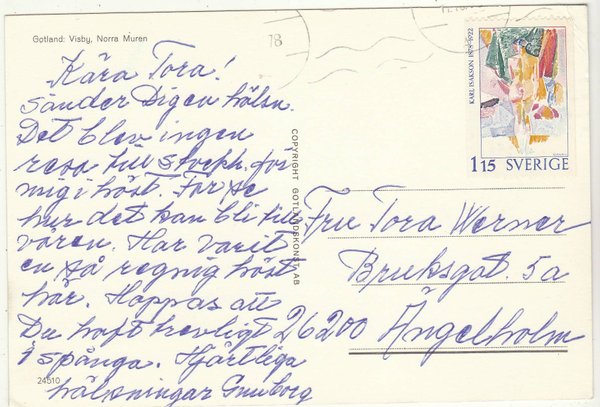 Gotland: Visby, Norra Muren
Kära Tora!
Sänder Dig en hälsn.
Det blev ingen
resa till Stockh. för
mig i höst. Får se
hur det kan bli till
våren. Har varit
en så regnig höst
här. Hoppas att
Du haft trevligt
i Spånga. Hjärtliga
hälsningar Gunborg
24510
COPYRIGHT GOTLANDSKONST AB
18
KARL ISAKSON 1878-1922
1 15 SVERIGE
Fru Tora Werner
Bruksgat. 5a
26200 Ängelholm